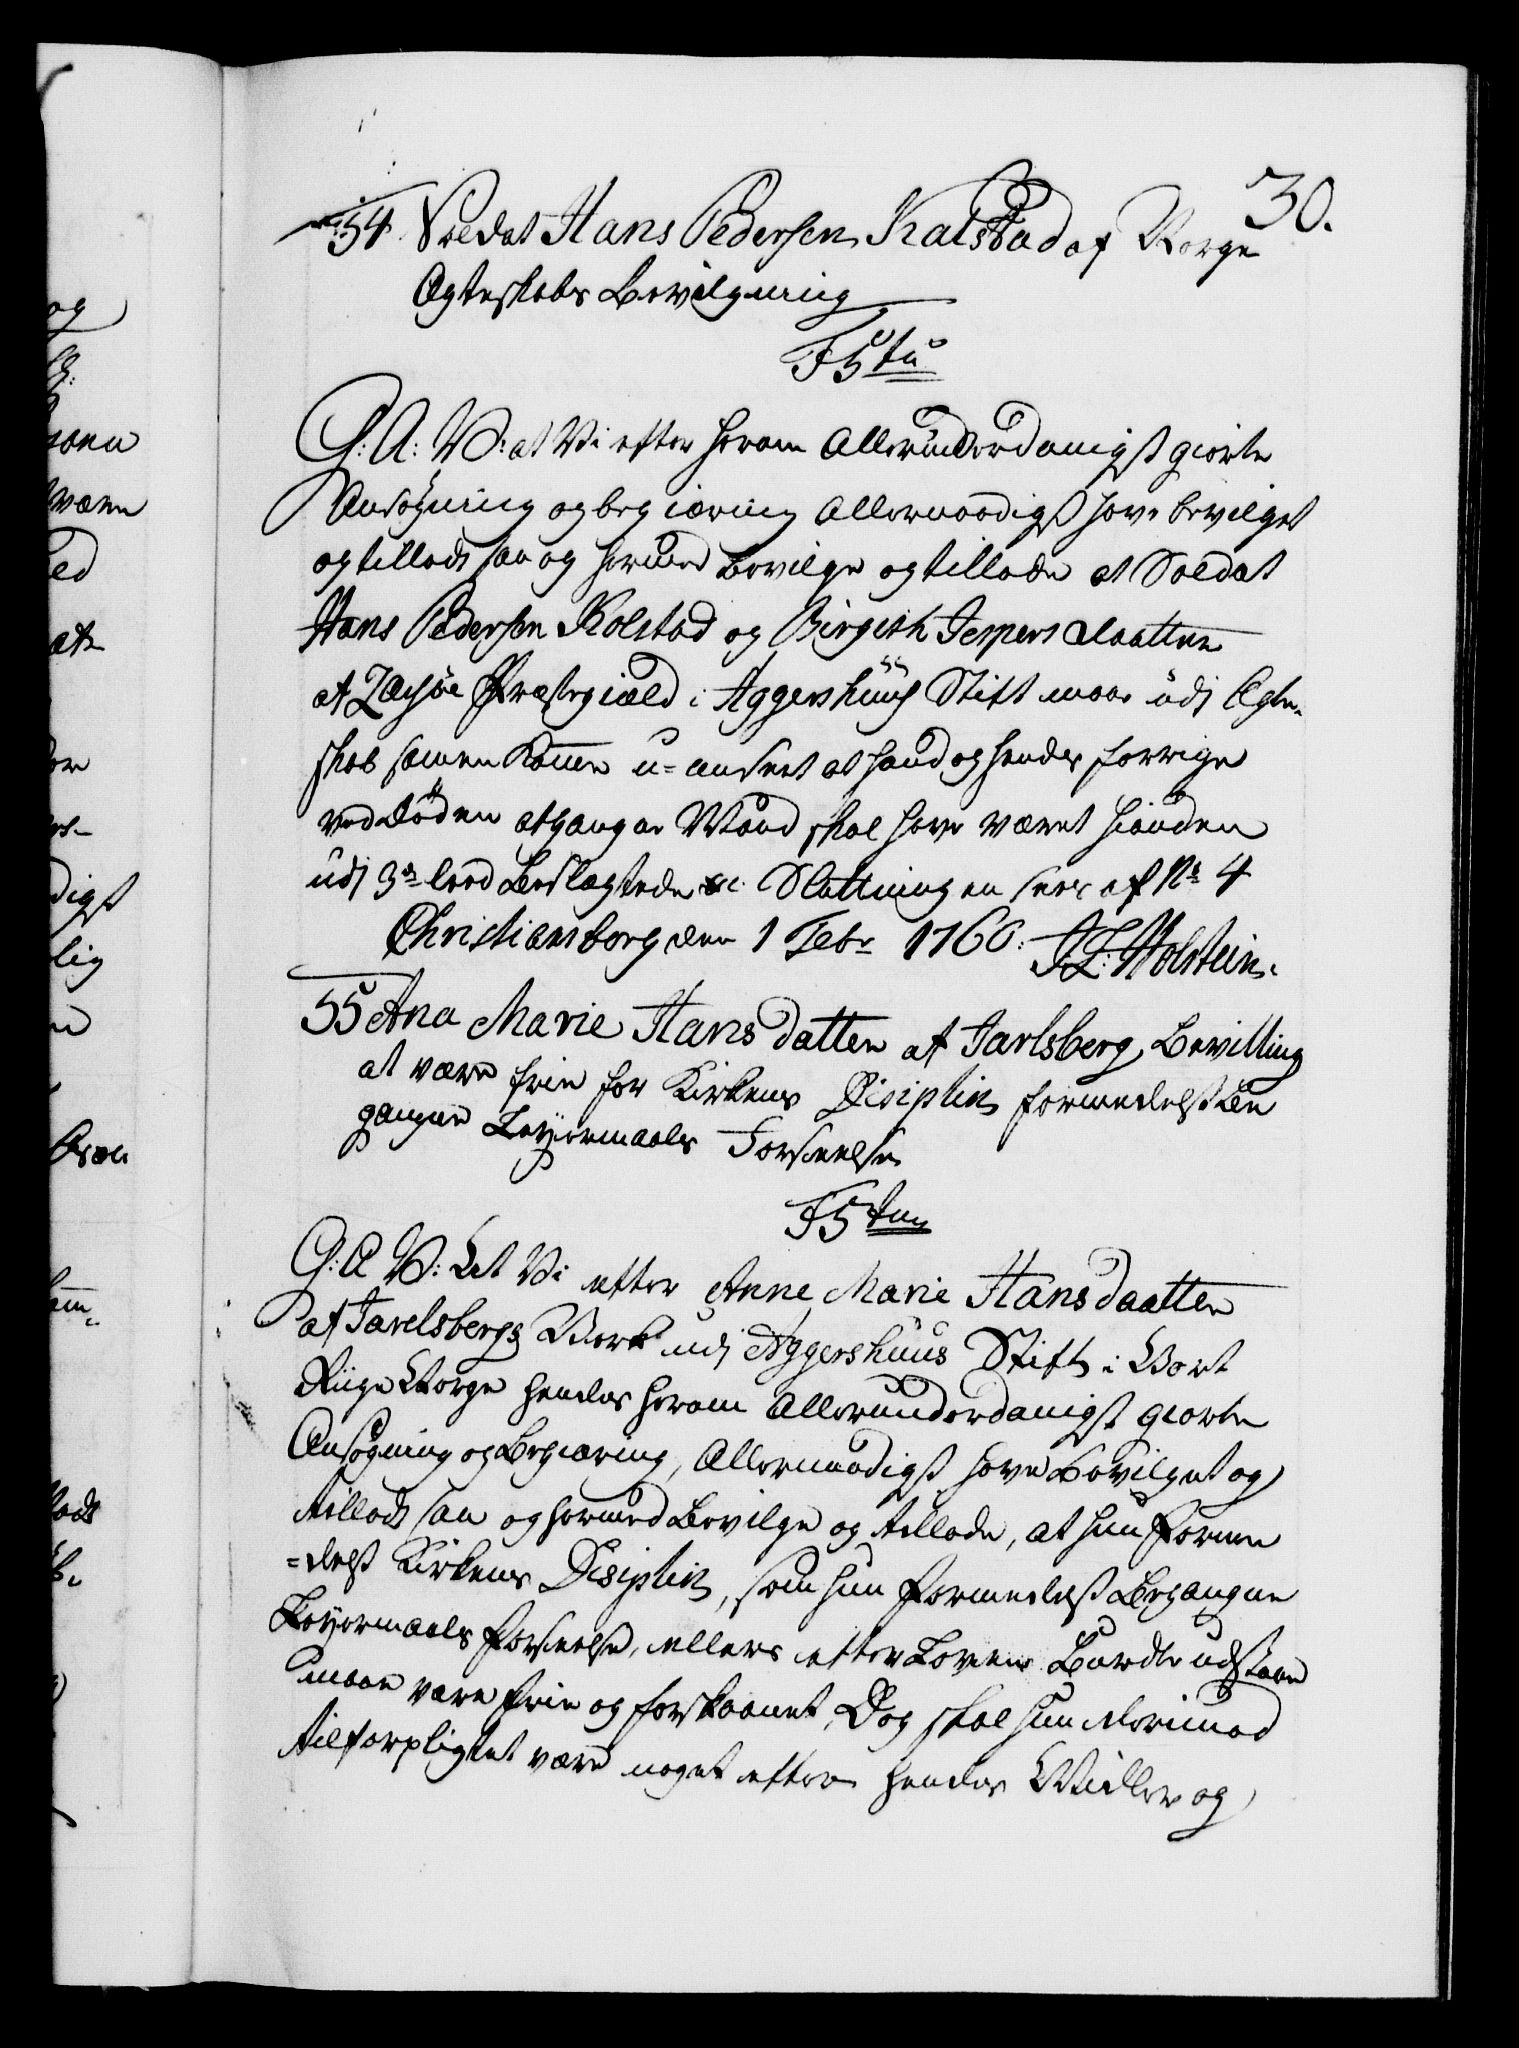 30.
54 Soldat Hans Pedersen Kalstad af Norge
Ægteskabs Bevilgning
F 5tu
G: A: V: at Vi efter herom Allerunderdanigst giorte
Ansøgning og begiæring Allernaadigst have bevilget
og tilladt saa og hermed bevilge og tillade at Soldat
Hans Pedersen Kolstad og Birgith Jespers daatter
af Lessøe Præstegiæld i Aggershuus Stift maae udi Ægte-
skab sammen komme u-anseet at hand og hendes forrige
ved døden afgangne Mand skal have været hinanden
udj 3die leed Beslægtede &c. Slutningen sees af No 4
Christiansborg den 1 Febr 1760. J L: Holstein.
55 Ana Marie Hans datter af Jarlsberg, Bevilling
at være frie for Kirkens Disiplin formedelst be
gangne Leyermaals Forseelse
F 5
G: A V: At Vi efter Anne Marie Hans daatter
af Jarelsbergs Werk udj Aggershuus Stift i Vort
Riige Norge hendes herom Allerunderdanigst giorte
Ansøgning og Begiæring, Allernaadigst have Bevilget og
tilladt saa og hermed Bevilge og tillade, at hun forme
-delst Kirkens Disiplin, som hun formedelst Begangne
Leyermaals forseelse, ellers efter Loven Burde udstaae
maae være frie og forskaanet, Dog skal hun derimod
tilforpligtet være noget efter hendes Midler og